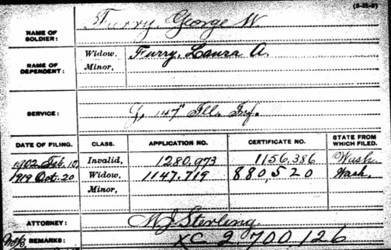 (3-25-9)
NAME OF SOLDIER: Furry, George W
NAME OF DEPENDENT: Widow, Furry, Laura A.
Minor,
SERVICE: G, 147" Ill. Inf.
DATE OF FILING. CLASS. APPLICATION NO. CERTIFICATE NO. STATE FROM WHICH FILED.
1902 Feb. 10 Invalid, 1280,973 1156,386 Wash.
1919 Oct. 20 Widow, 1147,719 880,520 Wash.
Minor,
ATTORNEY: M J Sterling
REMARKS: XC 2700,126